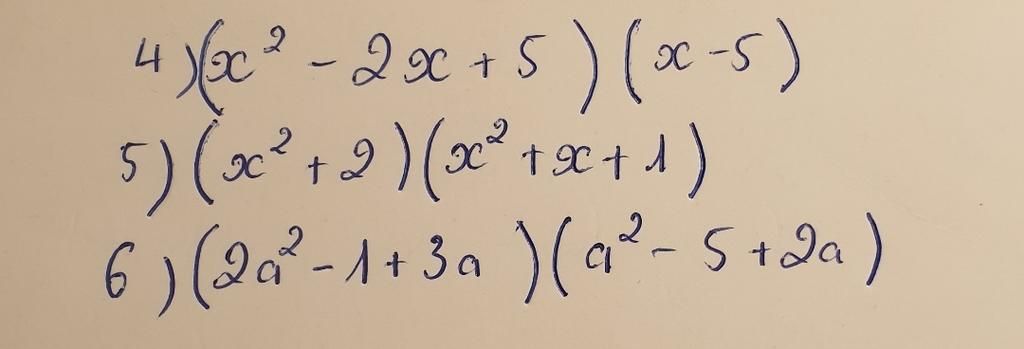 4) (x² - 2x + 5) (x - 5)
5) (x² + 2) (x² + x + 1)
6) (2a² - 1 + 3a) (a² - 5 + 2a)